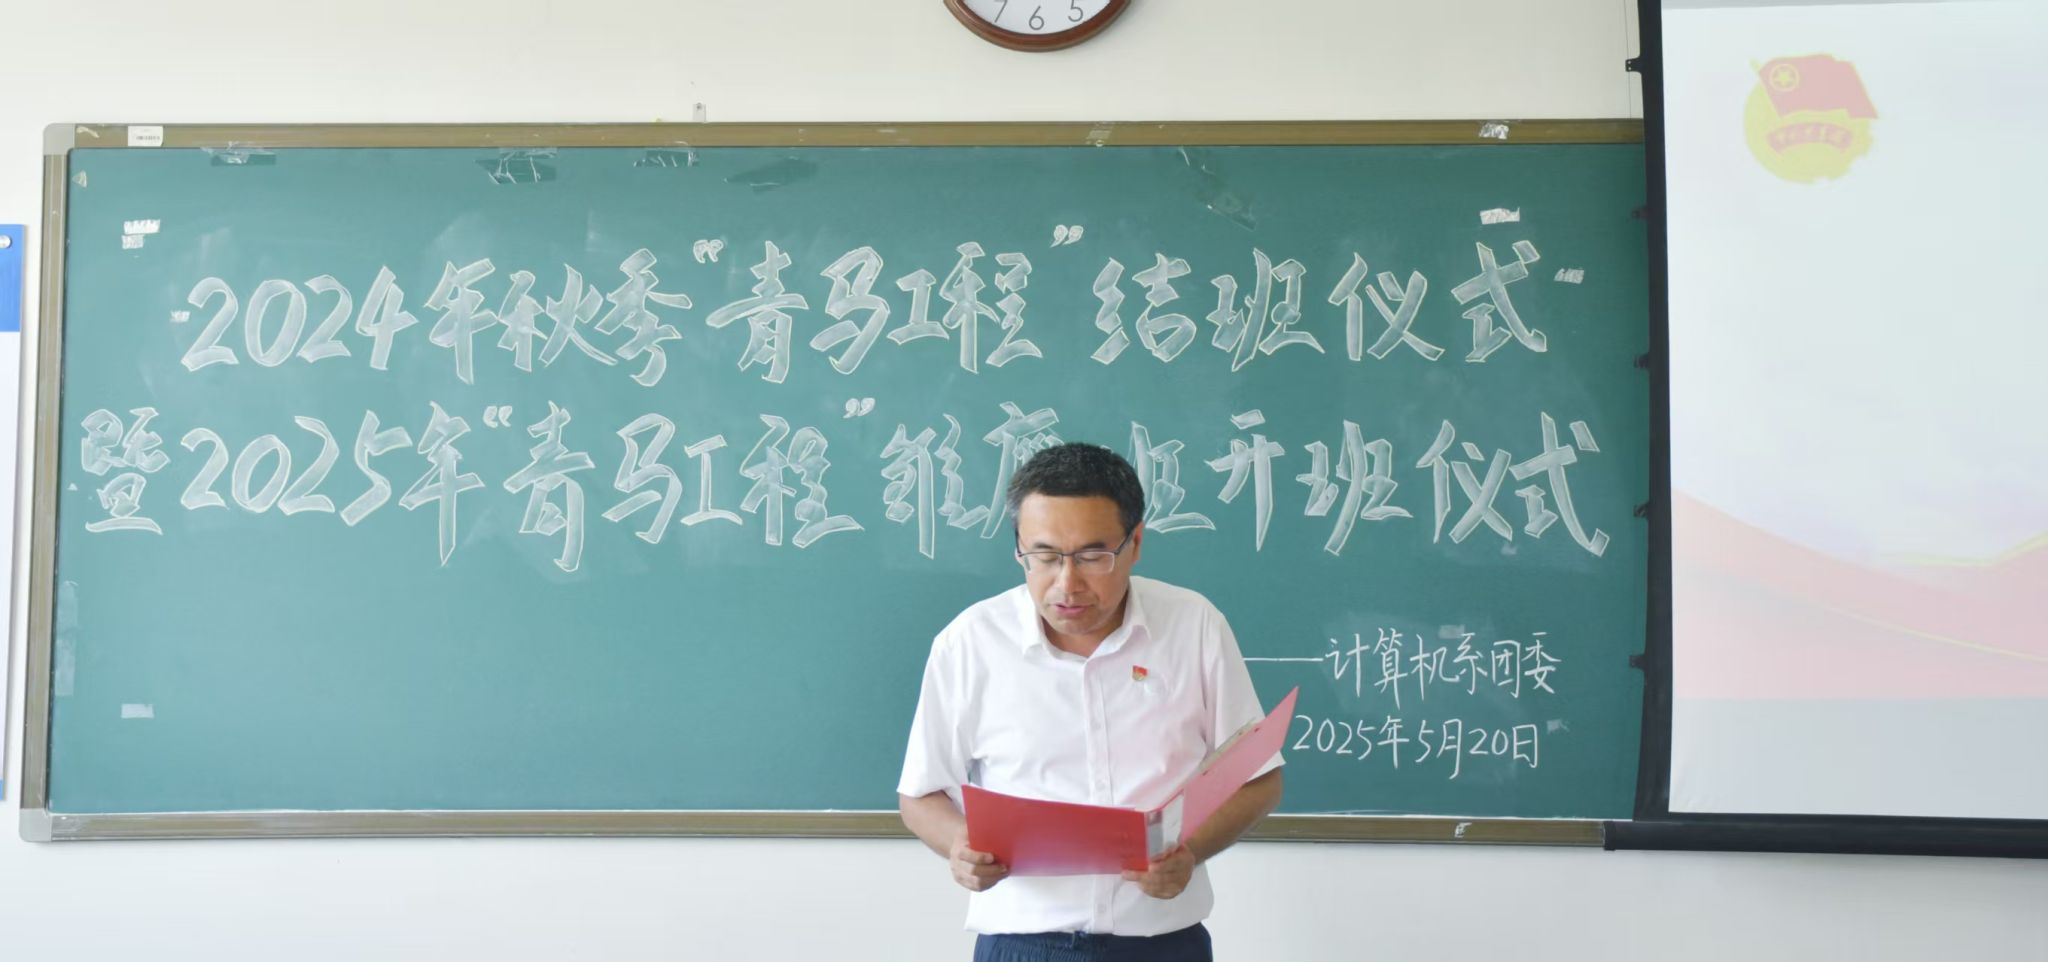 7 6 5
2024年秋季“青马工程”结班仪式
暨2025年“青马工程”雏鹰班开班仪式
——计算机系团委
2025年5月20日